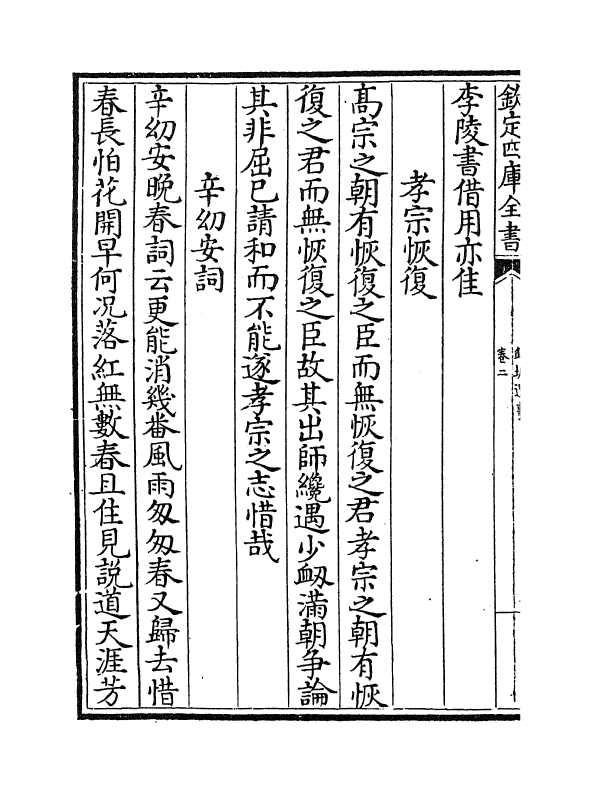 欽定四庫全書
卷二
李陵書借用亦佳
孝宗恢復
髙宗之朝有恢復之臣而無恢復之君孝宗之朝有恢
復之君而無恢復之臣故其出師纔遇少衂滿朝争論
其非屈已請和而不能遂孝宗之志惜哉
辛幼安詞
辛幼安晚春詞云更能消幾番風雨匆匆春又歸去惜
春長怕花開早何况落紅無數春且住見説道天涯芳